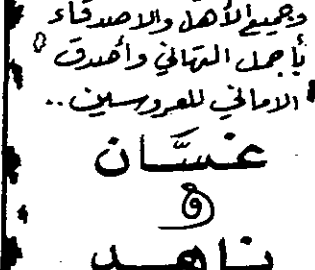 وجميع الأهل والاصدقاء
بأجمل التهاني وأصدق
الاماني للعروسين ..
غسَّان
و
ناهد